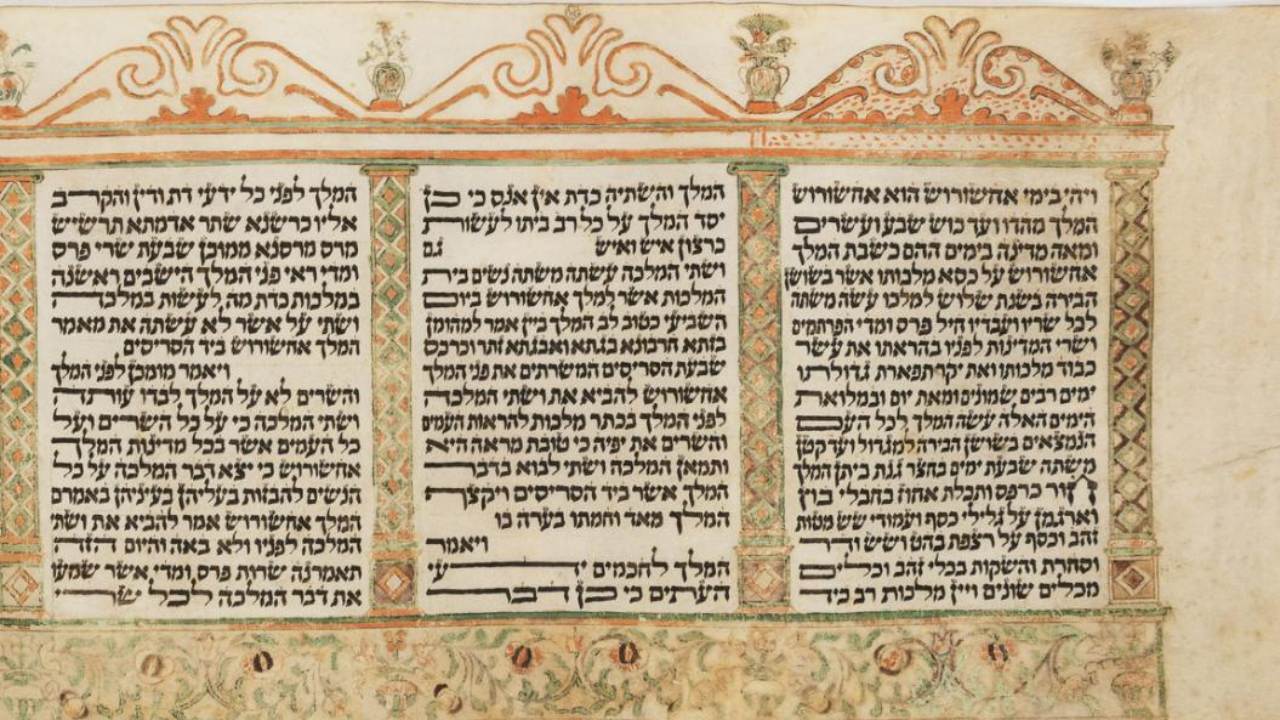 ויהי בימי אחשורוש הוא אחשורוש
המלך מהדו ועד כוש שבע ועשרים
ומאה מדינה בימים ההם כשבת המלך
אחשורוש על כסא מלכותו אשר בשושן
הבירה בשנת שלוש למלכו עשה משתה
לכל שריו ועבדיו חיל פרס ומדי הפרתמים
ושרי המדינות לפניו בהראתו את עשר
כבוד מלכותו ואת יקר תפארת גדולתו
ימים רבים שמונים ומאת יום ובמלואת
הימים האלה עשה המלך לכל העם
הנמצאים בשושן הבירה למגדול ועד קטן
משתה שבעת ימים בחצר גנת ביתן המלך
חור כרפס ותכלת אחוז בחבלי בוץ
וארגמן על גלילי כסף ועמודי שש מטות
זהב וכסף על רצפת בהט ושש ודר
וסחרת והשקות בכלי זהב וכלים
מכלים שונים ויין מלכות רב כיד
המלך והשתיה כדת אין אנס כי כן
יסד המלך על כל רב ביתו לעשות
כרצון איש ואיש גם
ושתי המלכה עשתה משתה נשים בית
המלכות אשר למלך אחשורוש ביום
השביעי כטוב לב המלך ביין אמר למהומן
בזתא חרבונא בגתא ואבגתא זתר וכרכס
שבעת הסריסים המשרתים את פני המלך
אחשורוש להביא את ושתי המלכה
לפני המלך בכתר מלכות להראות העמים
והשרים את יפיה כי טובת מראה היא
ותמאן המלכה ושתי לבוא בדבר
המלך אשר ביד הסריסים ויקצף
המלך מאד וחמתו בערה בו
ויאמר
המלך לחכמים ידעי
העתים כי כן דבר
המלך לפני כל ידעי דת ודין והקרב
אליו כרשנא שתר אדמתא תרשיש
מרס מרסנא ממוכן שבעת שרי פרס
ומדי ראי פני המלך הישבים ראשנה
במלכות כדת מה לעשות במלכה
ושתי על אשר לא עשתה את מאמר
המלך אחשורוש ביד הסריסים
ויאמר מומכן לפני המלך
והשרים לא על המלך לבדו עותה
ושתי המלכה כי על כל השרים ועל
כל העמים אשר בכל מדינות המלך
אחשורוש כי יצא דבר המלכה על כל
הנשים להבזות בעליהן בעיניהן באמרם
המלך אחשורוש אמר להביא את ושתי
המלכה לפניו ולא באה והיום הזה
תאמרנה שרות פרס ומדי אשר שמעו
את דבר המלכה לכל שרי